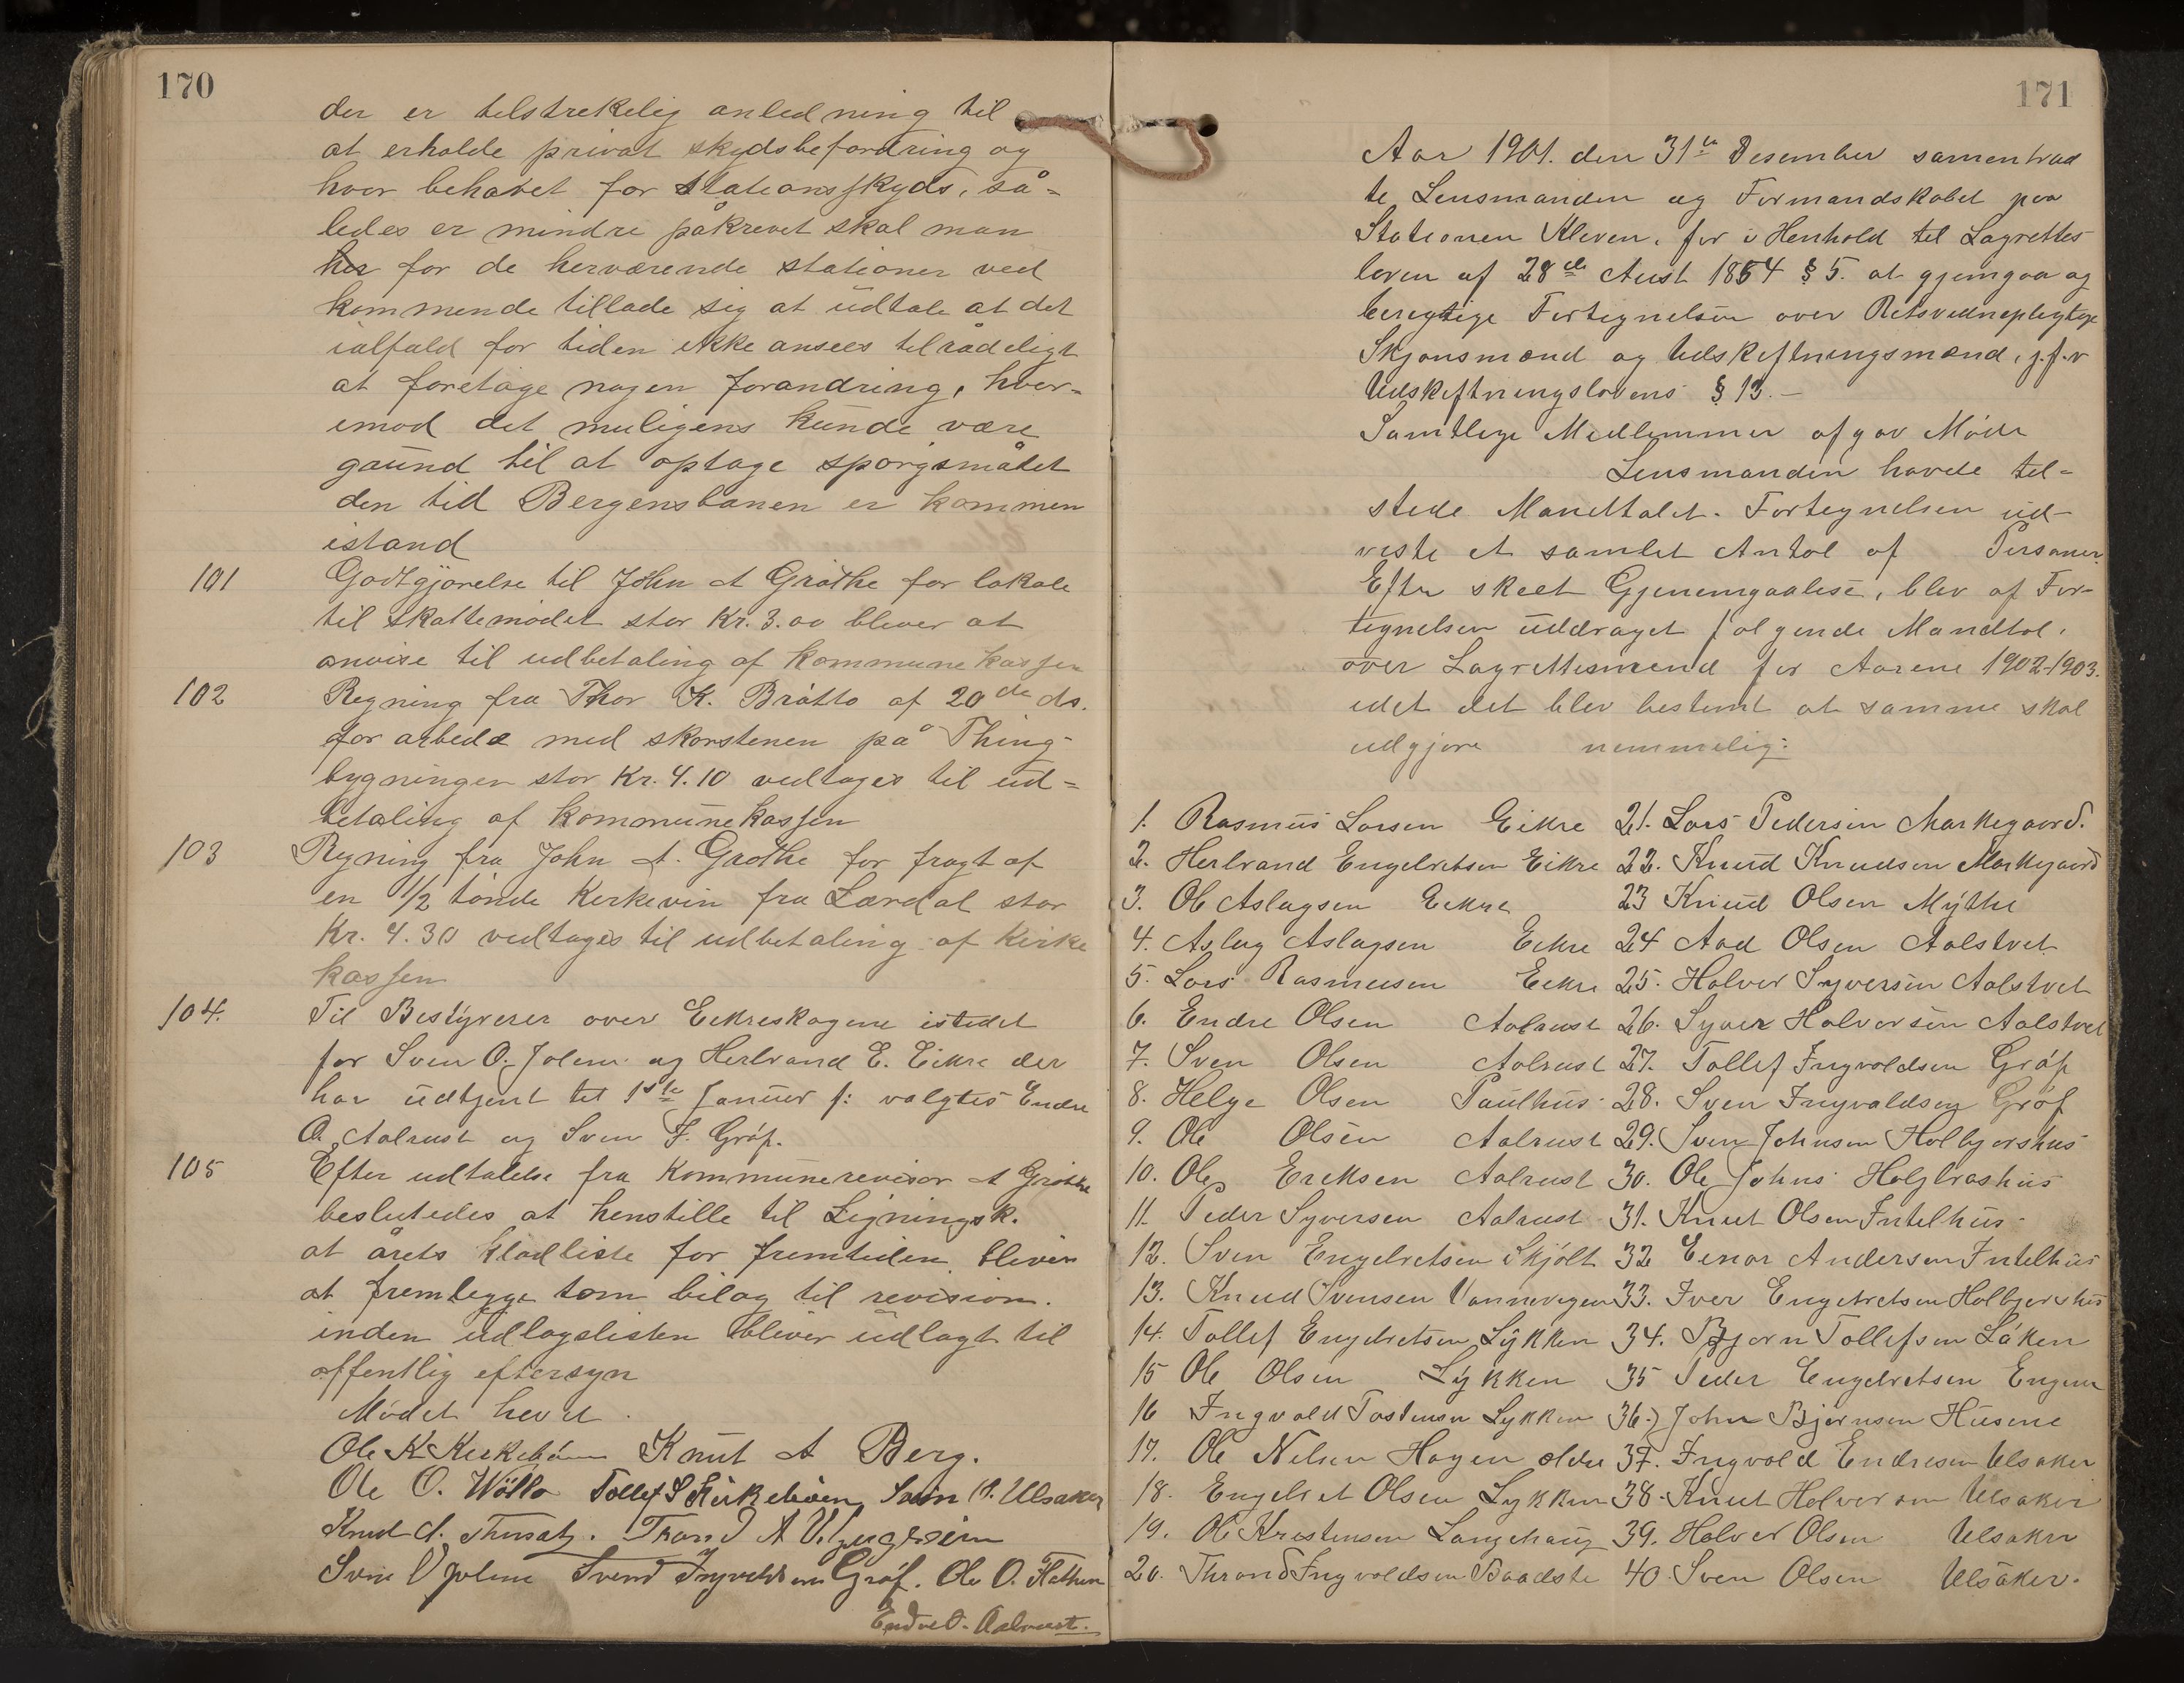 170
der er tilstrekelig anledning til
at erholde privat skydsbefordring og
hvor behovet for Stationsskyds, så-
ledes er mindre påkrevet skal man
her for de herværende stationer ved
kommende tillade sig at udtale at det
ialfald for tiden ikke ansees tilrådeligt
at foretage nogen forandring, hver-
imod det muligens kunde være
gaund til at optage sporgsmålet
den tid Bergensbanen er kommen
istand
101 Godtgjørelse til John A Grøthe for lokale
til skattemødet stor Kr. 3.00 blever at
anvise til udbetaling af kommunekassen
102 Regning fra Thor K. Bråtto af 20de ds.
for arbede med skorstenen på Thing-
bygningen stor Kr. 4.10 vedtages til ud-
betaling af kommunekassen
103 Regning fra John A. Grøthe for fragt af
en 1/2 tønde Kerkevin fra Lærdal stor
Kr. 4.30 vedtages til udbetaling af Kirke
kassen
104. Til Bestyrerer over Eekreskogene istedet
for Sven O. Jolem og Herbrand E. Eikre der
har udtjent tet 1ste Januer f: valgtes Endre
O. Aalrust og Sven I. Gróf.
105 Efter udtalelse fra Kommunerevisor A Grøthe
beslutedes at henstille til Ligningsk.
at årets kladliste for fremtiden bliver
at fremlegge som bilag til revision.
inden udlagslisten blever udlagt til
offentlig eftersyn
Mødet hevet.
Ole K Kirkebøen Knut A Berg.
Ole O. Wøllo Tollef S Kirkebøen, Sven O. Ulsaker
Knud A. Trond A
Sven O Jolem Svend Ingvaldsen Gróf. Ole O.
Endre O. Aalrust.
171
Aar 1901. den 31te Desember samentraad
te Lensmanden og Formandskabet paa
Stationen Kleven, for i Henhold til Lagrettes
loven af 28de Aust 1854 § 5. at gjemgaa og
beregtige Fortegnelsen over Retsvednepligtige
Skjonsmænd og Udskiftningsmænd, j.f.r
Udskiftningslovens § 13.—
Samtlige Medlemmer afgav Møde
Lensmanden havde tel-
stede Mandtalet. Fortegnelsen ud-
viste et samlet Antal af Personer.
Efter skeet Gjenemgaalese, blev af For-
tegnelsen uddraget følgende Mandtal,
over Lagrettesmænd for Aarene 1902-1903.
idet det blev bestemt at samme skal
udgjøre nemmelig:
1. Rasmus Larsen Eikre 21. Lars Pedersen Markegaard.
2. Herbrand Engebretsen Eikre 22. Knud Knudsen Markegaard
3. Ole Aslagsen Eekre 23 Knud Olsen Mythe
4. Aslag Aslagsen Eekre 24 Aad Olsen Aalstvet
5. Lars Rasmusen Eekre 25. Halvor Syversen Aalstvet
6. Endre Olsen Aalrust 26. Syver Halvorsen Aalstvet
7. Sven Olsen Aalrust 27. Tollef Ingvoldsen Gróf
8. Helge Olsen Paulhus 28. Sven Ingvaldsen Gróf
9. Ole Olsen Aalrust 29. Sven Johnsen Holbjørshus
10. Ole Ereksen Aalrust 30. Ole Johns
11. Peder Syversen Aalrust 31. Knut Olsen Intelhus
12. Sven Engebretsen Skjølt 32 Eenar Andersen Intelhus
13. Knud Svensen 33. Iver Engebretsen
14. Tollef Engebretsen Lykken 34. Bjørn Tollefsen Låken
15 Ole Olsen Lykken 35 Peder Engebretsen Engene
16 Ingvald Tostensen Lykken 36. John Bjørnsen Husene
17. Ole Nelsen Hagen eldre 37. Ingvold Endresen Ulsaker
18. Engebret Olsen Lykken 38. Knut Halvorsen Ulsaker
19. Ole Kristensen Langehaug 39. Halvor Olsen Ulsaker
20. Thrond Ingvoldsen Baadste 40. Sven Olsen Ulsaker.